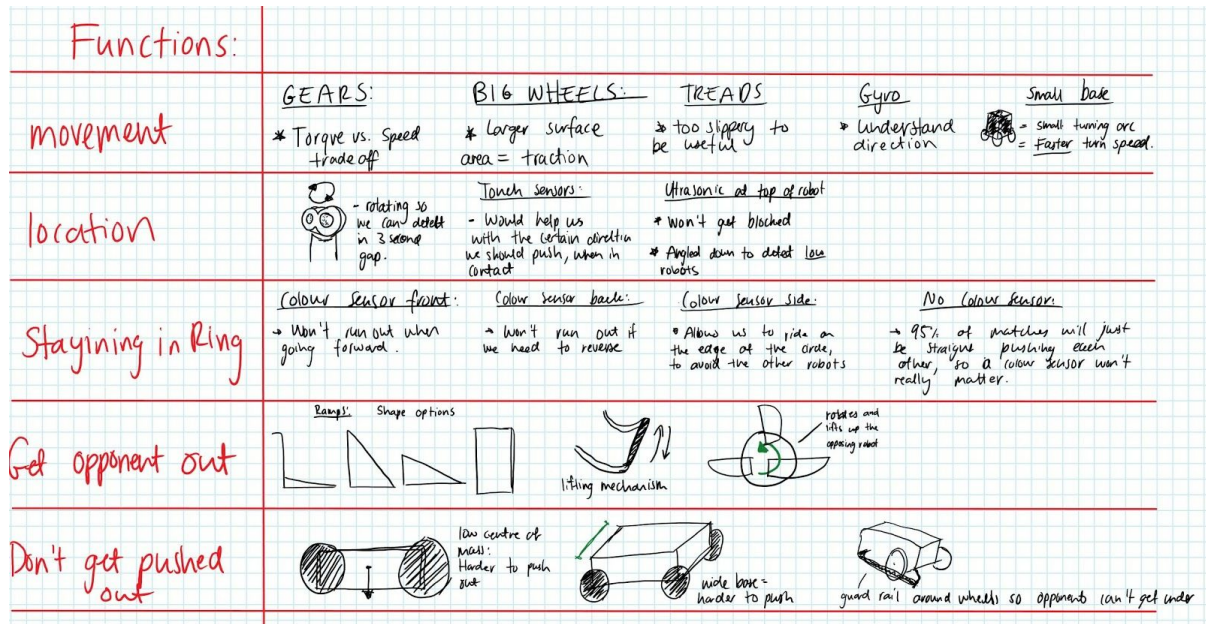 Functions:
movement
GEARS:
* Torque vs. Speed
trade off
BIG WHEELS:
* Larger surface
area = traction
TREADS
* too slippery to
be useful
Gyro
* understand
direction
small base
= small turning arc
= Faster turn speed.
location
- rotating so
we can detect
in 3 second
gap.
Touch sensors:
- Would help us
with the certain direction
we should push, when in
contact
Utrasonic at top of robot
* won't get blocked
* Angled down to detect low
robots
Stayining in Ring
Colour Sensor front:
→ Won't run out when
going forward.
Colour Sensor back:
→ Won't run out if
we need to reverse
Colour Sensor side:
* Allows us to ride on
the edge of the circle,
to avoid the other robots
No Colour Sensor:
→ 95% of matches will just
be straight pushing each
other, so a colour sensor won't
really matter.
Get opponent out
Ramps: Shape options
lifting mechanism
rotates and
lifts up the
opposing robot
Don't get pushed
out
low centre of
mass:
Harder to push
out
wide base =
harder to push
guard rail around wheels so opponents can't get under